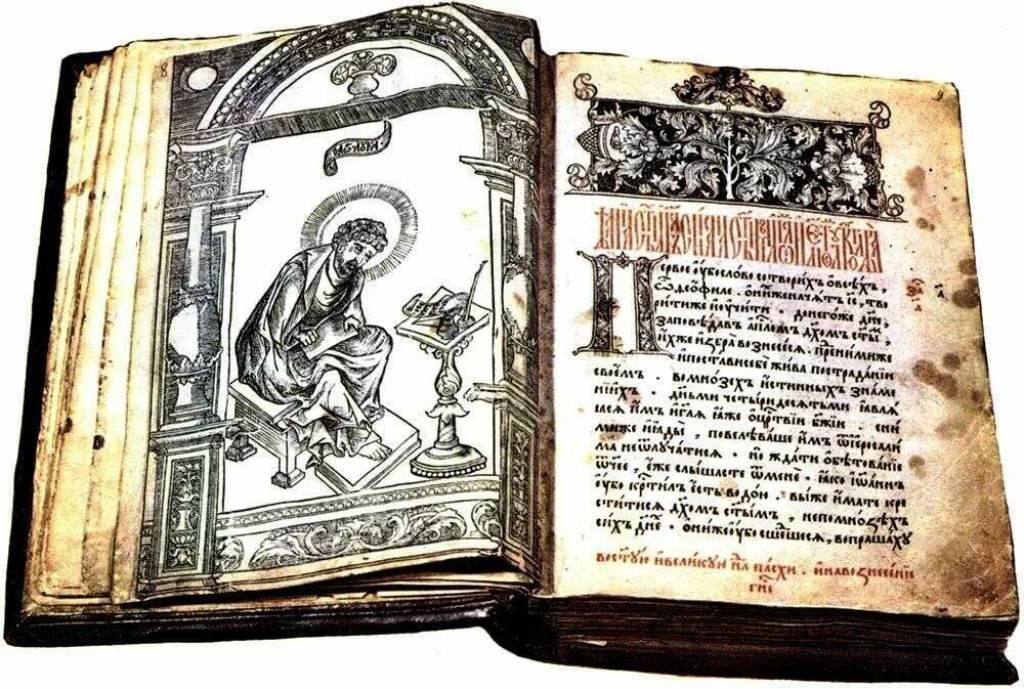 8
9
Первое ᲂу҆бо слово сотворихъ ѡ всѣхъ,
ѽ ѳеофиле. ѡ нихже начатъ і҃с, тво
рити же и ᲂучити. донегоже дн҃е,
заповѣдавъ апⷭ҇ломъ дх҃омъ ст҃ы,
ихже избра вознесеся. пре нимиже
и постави себе жива по страданїи
своемъ. во мнозѣхъ истинныхъ знаме
нїихъ. дньми четыридесѧтьми ꙗвлѧ
ꙗсѧ имъ и гл҃ѧ ꙗже о црⷭ҇твїи бж҃їи. с ни
миже и ꙗды, повелѣваше имъ ѿ іерⷭ҇али
ма не ѿлꙋчатисѧ. но ждати ѡбѣтованїе
ѿчее, еже слышасте ѿ мене. ꙗко іѡаннъ
ᲂубо крⷭ҇тилъ есть водою. вы же имате кре
ститисѧ дх҃омъ ст҃ымъ, не по мнозѣхъ
сихъ дне. ѡни же ᲂубо сшешесѧ, вопрашахꙋ
в ст҃ꙋю и великꙋю н҃лю пасхи. и на вознесенїе
гн҃е